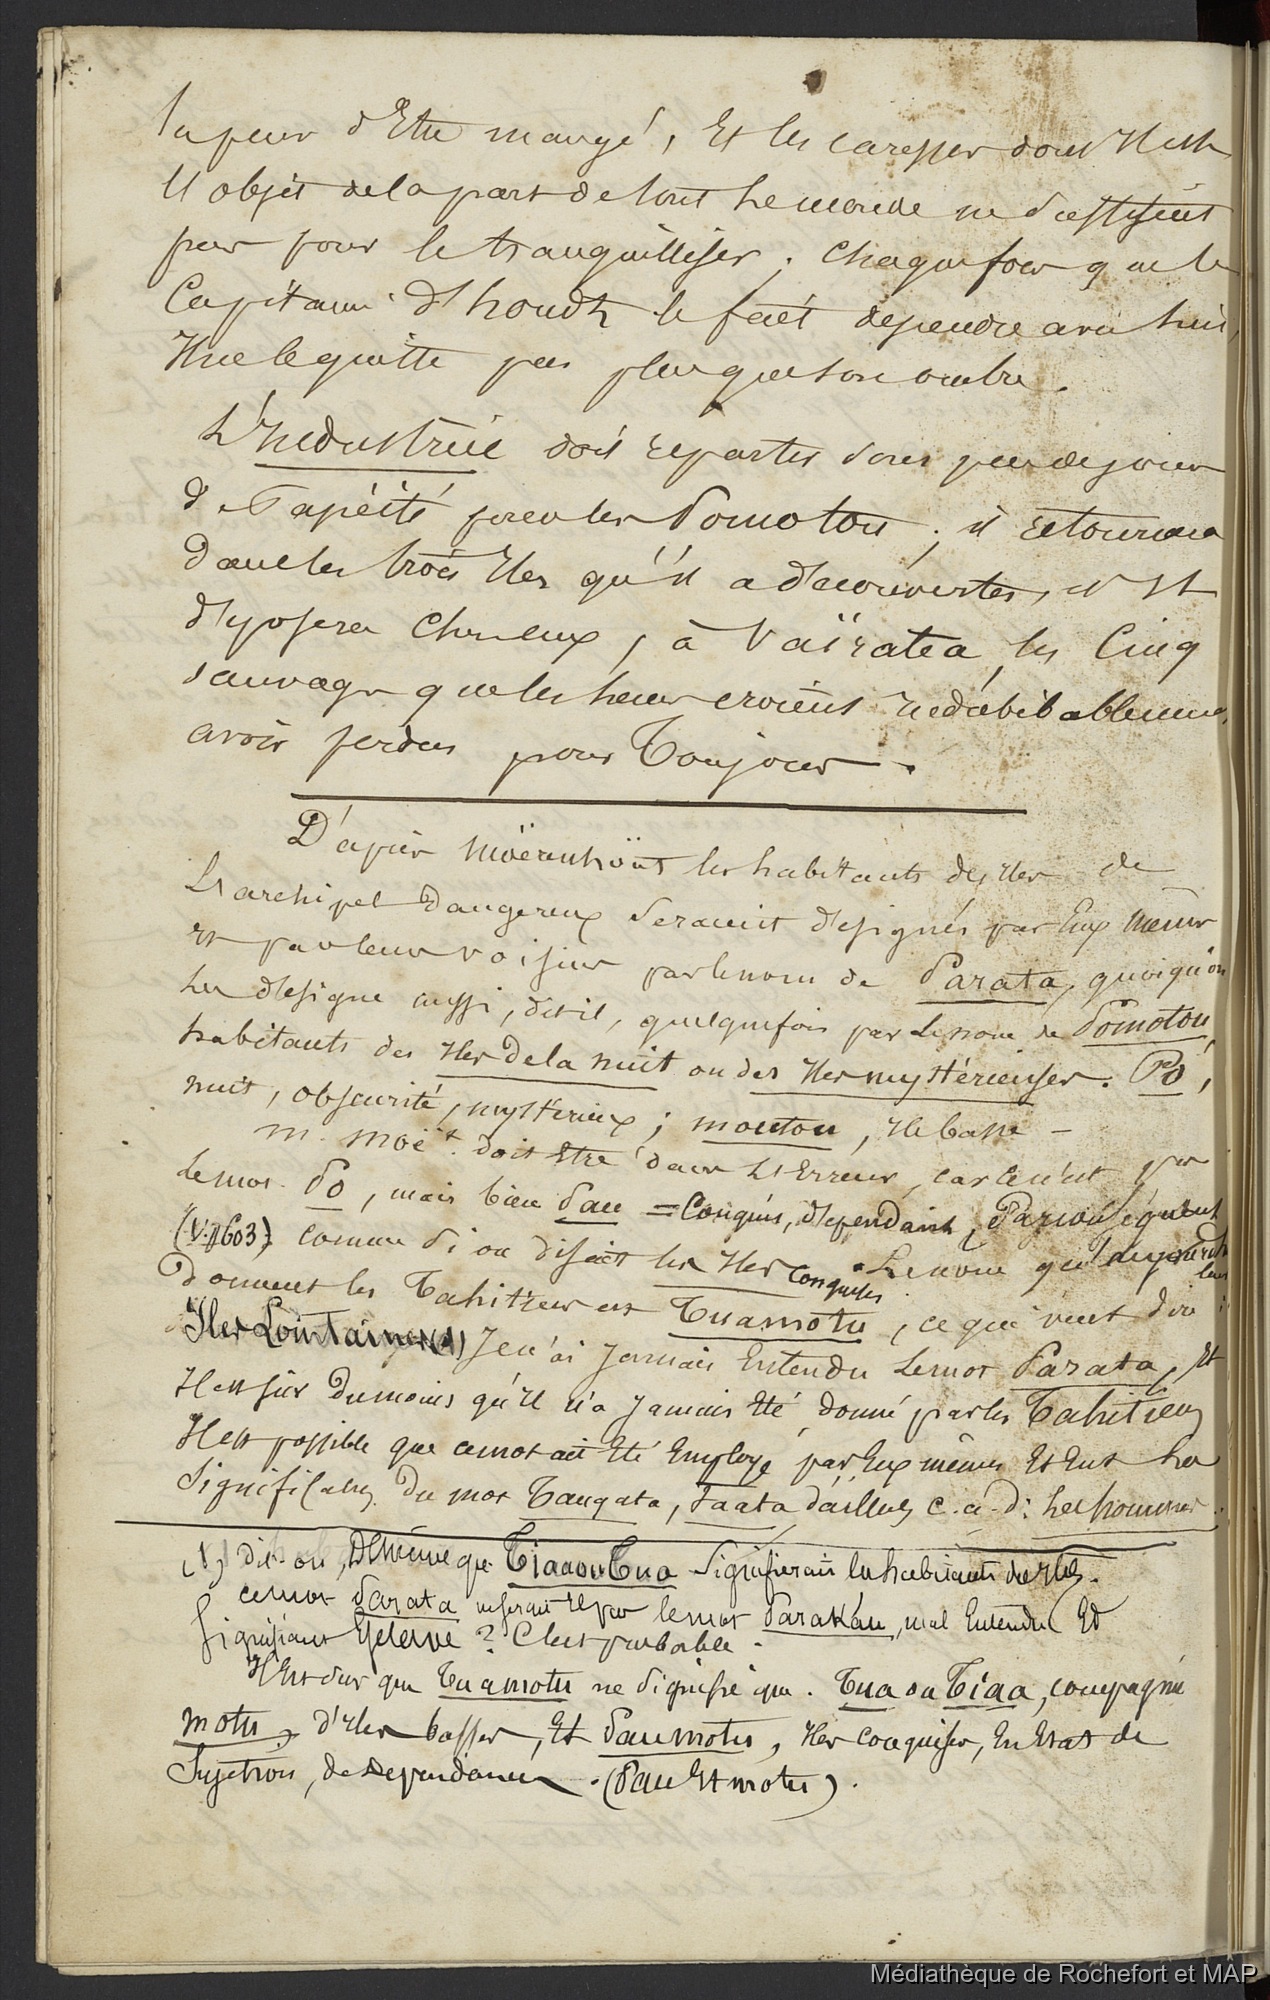 la peur d'Etre mangé, Et les caresses dont Il est
l'objet de la part de tout le monde ne suffisent
pas pour le tranquilliser. Chaque fois que le
Capitaine d'hondt le fait descendre avec lui,
Il ne le quitte pas plus que son ombre.
L'Industrie doit repartir sous peu de jours
de Tapéiti pour les Pomotou ; il retournera
dans les trois Iles qu'il a découvertes, et Il
déposera chez eux, à Vaïratea, les Cinq
sauvages que les leurs croient indubitablement
avoir perdus pour Toujours.
D'après Moërenhoüt les habitants des Iles de
L'archipel Dangereux seraient désignés par Eux mêmes
et par leurs voisins par le nom de Parata, quoiqu'on
les désigne aussi, dit-il, quelquefois par le nom de Pomotou,
habitants des Iles de la nuit ou des Iles mystérieuses. Pô,
nuit, obscurité, mystérieux ; moutou, Ile basse –
M. Moët. doit Etre dans L'Erreur, car ce n'est pas
le mot Po, mais bien Pau = Conquis, dépendant, Par conséquent
(V. p 603) comme si on disait les Iles Conquises. Le nom que
donnent les Tahitiens est Tuamotu, ce qui veut dire :
Iles Lointaines (1) Je n'ai Jamais Entendu le mot Parata, Et
Il est sûr Du moins qu'Il n'a Jamais Eté donné par les Tahitiens
Il est possible que ce mot ait Eté Employé par Eux mêmes Et Eut la
Signification Du mot Tangata, taata d'ailleurs c. à. d: les hommes.
(1) dit-on, De même que Tiaaou Tua Signifierait les habitants des Iles.
ce mot Parata ne serait Il pas le mot Parakau, mal Entendu Et
Signifiant Esclave ? C'est probable.
Il Est sur que Tuamotu ne signifie que. Tua ou Tiaa, compagnie
motu, d'Iles basses, Et Paumotu, Iles conquises, En Etat de
Sujétion, de Dépendance. (Pau Et motu).
Médiathèque de Rochefort et MAP